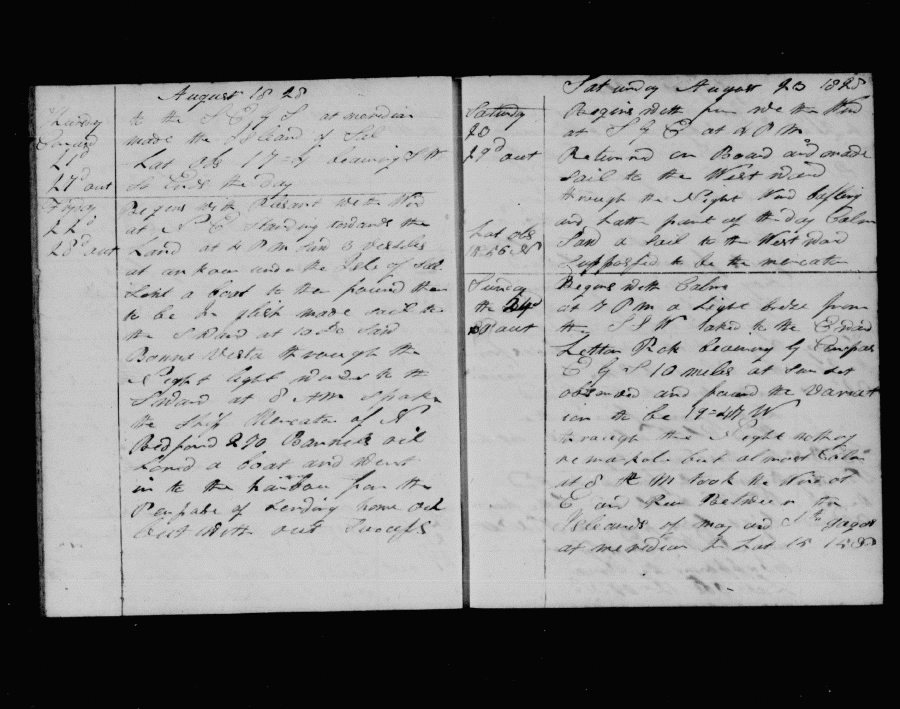 August 1828
to the S E & S at meridian
made the Island of Sal
21d
Lat obs 17= bearing S W
27d out
So Ends the day
22d
28d out
Begins with Plesant with Wind
at N E Standing towards the
Land at 4 P M Saw 3 vessels
at ankor under the Isle of Sal
Sent a boat to them found them
to be English made sail to
the S ward at 10 oc Saw
Bonna Vista through the
Night light winds to the
S ward at 8 AM Spake
the Ship Mercator of N
Bedford 290 Barrels oil
Lowed a boat and went
in to the harbour for the
Purpose of Sending home oil
but with out Success
Saturday August 23 1828
Saturday
23
29d out
Begins with fin we the Wind
at S & E at 4 P M
Returned on Board and made
Sail to the West ward
through the Night Wind baffling
and Latter part of the day Calm
Lat obs
Saw a Sail to the West ward
Supposed to be the mercator
Sunday
the 24d
out
Begins with Calms
at 7 P M a Light breze from
the S S W taked to the Eward
Peck bearing by Compas
E & S 10 miles at Sun set
observed and found the variat
ion to be 19=47 W
through the Night nothing
remarkable but almost Calm
at 8 A M took the Wind at
E and Run Between the
Islands of may and St Jagos
at meridian in Lat 15